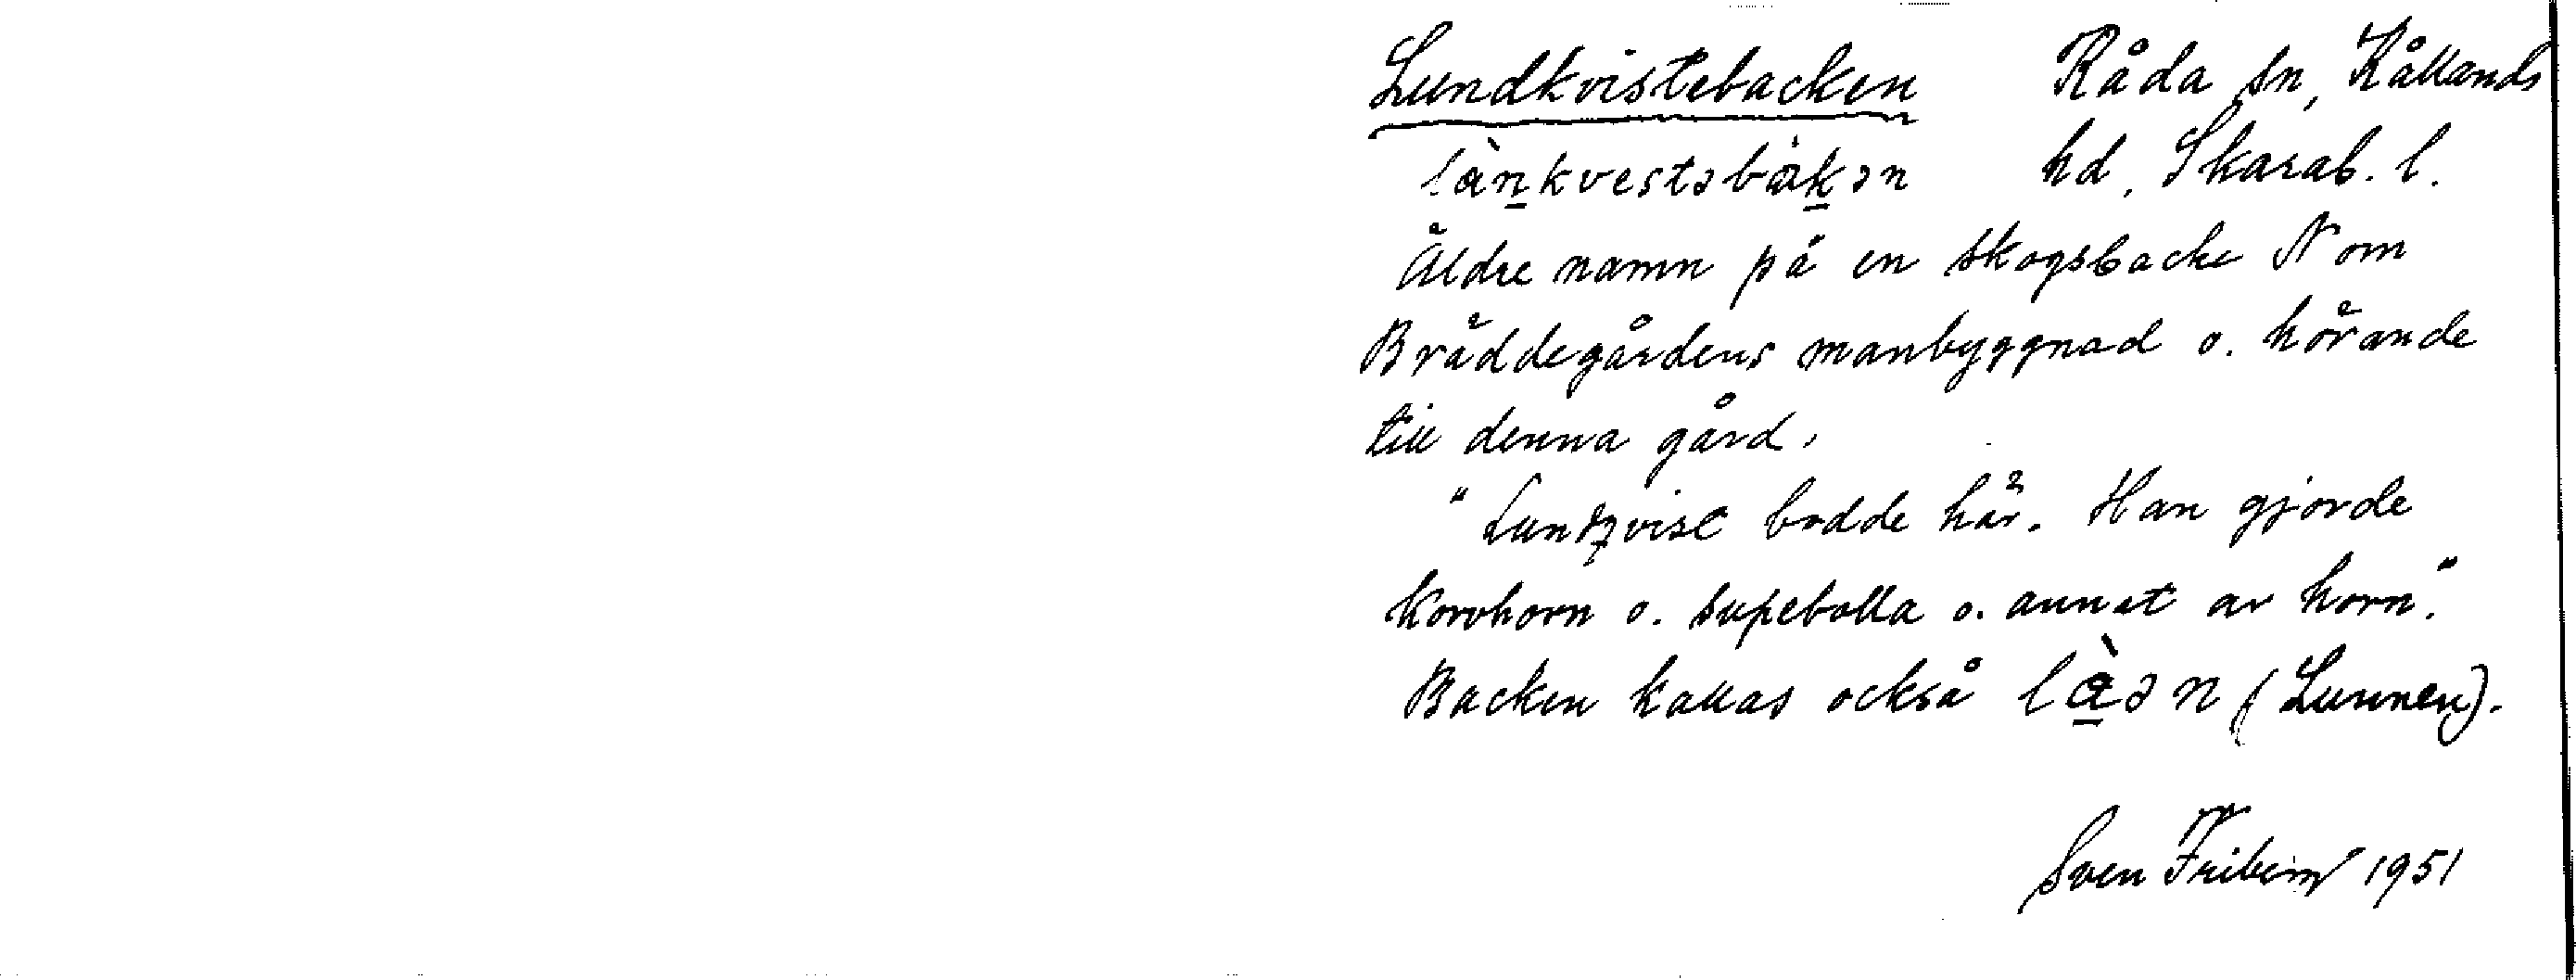 Lundkvistebacken Råda sn, Kållands
là̱nkvestəbàḵən hd, Skarab. l.
Äldre namn på en skogsbacke N om
Bräddegårdens manbyggnad o. hörande
till denna gård.
"Lundqvist bodde här. Han gjorde
korvhorn o. supebolla o. annat av horn."
Backen kallas också là̱ən (Lunnen).
Sven Friberg 1951